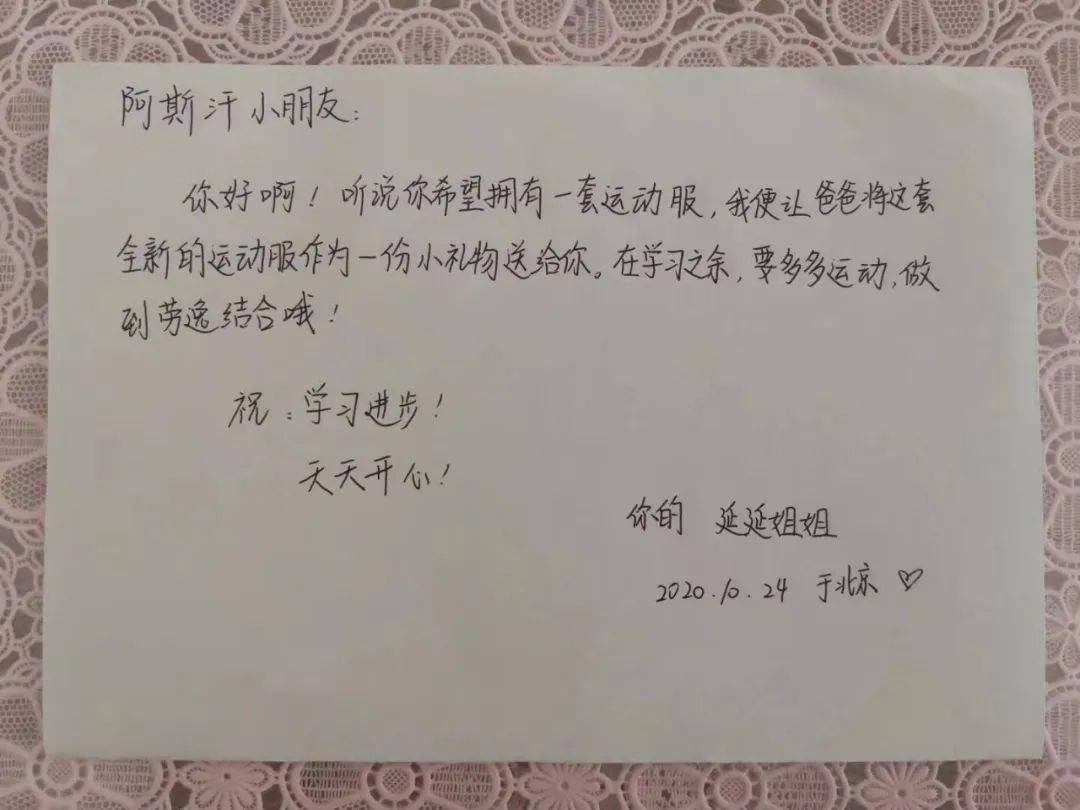 阿斯汗小朋友：
你好啊！听说你希望拥有一套运动服，我便让爸爸将这套
全新的运动服作为一份小礼物送给你。在学习之余，要多多运动，做
到劳逸结合哦！
祝：学习进步！
天天开心！
你的 延延姐姐
2020.10.24 于北京♡